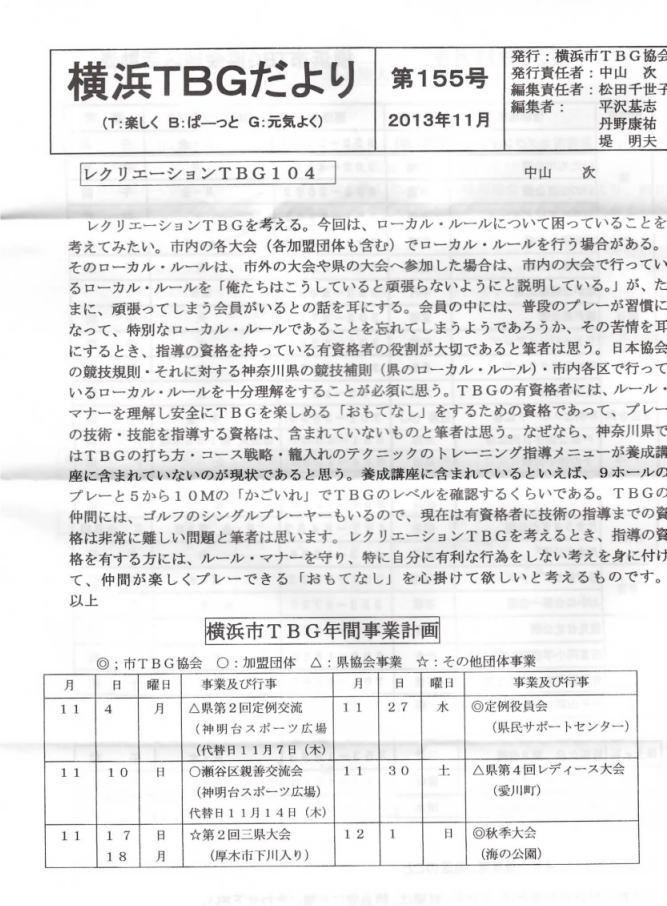 横浜TBGだより
(T:楽しく B:ぱーっと G:元気よく)
第155号
2013年11月
発行:横浜市TBG協会
発行責任者:中山 次
編集責任者:松田千世子
編集者: 平沢基志
丹野康祐
堤 明夫
レクリエーションTBG104
中山 次
レクリエーションTBGを考える。今回は、ローカル・ルールについて困っていることを
考えてみたい。市内の各大会(各加盟団体も含む)でローカル・ルールを行う場合がある。
そのローカル・ルールは、市外の大会や県の大会へ参加した場合は、市内の大会で行ってい
るローカル・ルールを「俺たちはこうしていると頑張らないようにと説明している。」が、た
まに、頑張ってしまう会員がいるとの話を耳にする。会員の中には、普段のプレーが習慣に
なって、特別なローカル・ルールであることを忘れてしまうようであろうか、その苦情を耳
にするとき、指導の資格を持っている有資格者の役割が大切であると筆者は思う。日本協会
の競技規則・それに対する神奈川県の競技補則(県のローカル・ルール)・市内各区で行って
いるローカル・ルールを十分理解をすることが必須に思う。TBGの有資格者には、ルール・
マナーを理解し安全にTBGを楽しめる「おもてなし」をするための資格であって、プレー
の技術・技能を指導する資格は、含まれていないものと筆者は思う。なぜなら、神奈川県で
はTBGの打ち方・コース戦略・籠入れのテクニックのトレーニング指導メニューが養成講
座に含まれていないのが現状であると思う。養成講座に含まれているといえば、9ホールの
プレーと5から10Mの「かごいれ」でTBGのレベルを確認するくらいである。TBGの
仲間には、ゴルフのシングルプレーヤーもいるので、現在は有資格者に技術の指導までの資
格は非常に難しい問題と筆者は思います。レクリエーションTBGを考えるとき、指導の資
格を有する方には、ルール・マナーを守り、特に自分に有利な行為をしない考えを身に付け
て、仲間が楽しくプレーできる「おもてなし」を心掛けて欲しいと考えるものです。
以上
横浜市TBG年間事業計画
◎;市TBG協会 ○:加盟団体 △:県協会事業 ☆:その他団体事業
月 日 曜日 事業及び行事 月 日 曜日 事業及び行事
11 4 月 △県第2回定例交流 11 27 水 ◎定例役員会
(神明台スポーツ広場 (県民サポートセンター)
(代替日11月7日(木)
11 10 日 ○瀬谷区親善交流会 11 30 土 △県第4回レディース大会
(神明台スポーツ広場) (愛川町)
代替日11月14日(木)
11 17 日 ☆第2回三県大会 12 1 日 ◎秋季大会
18 月 (厚木市下川入り) (海の公園)